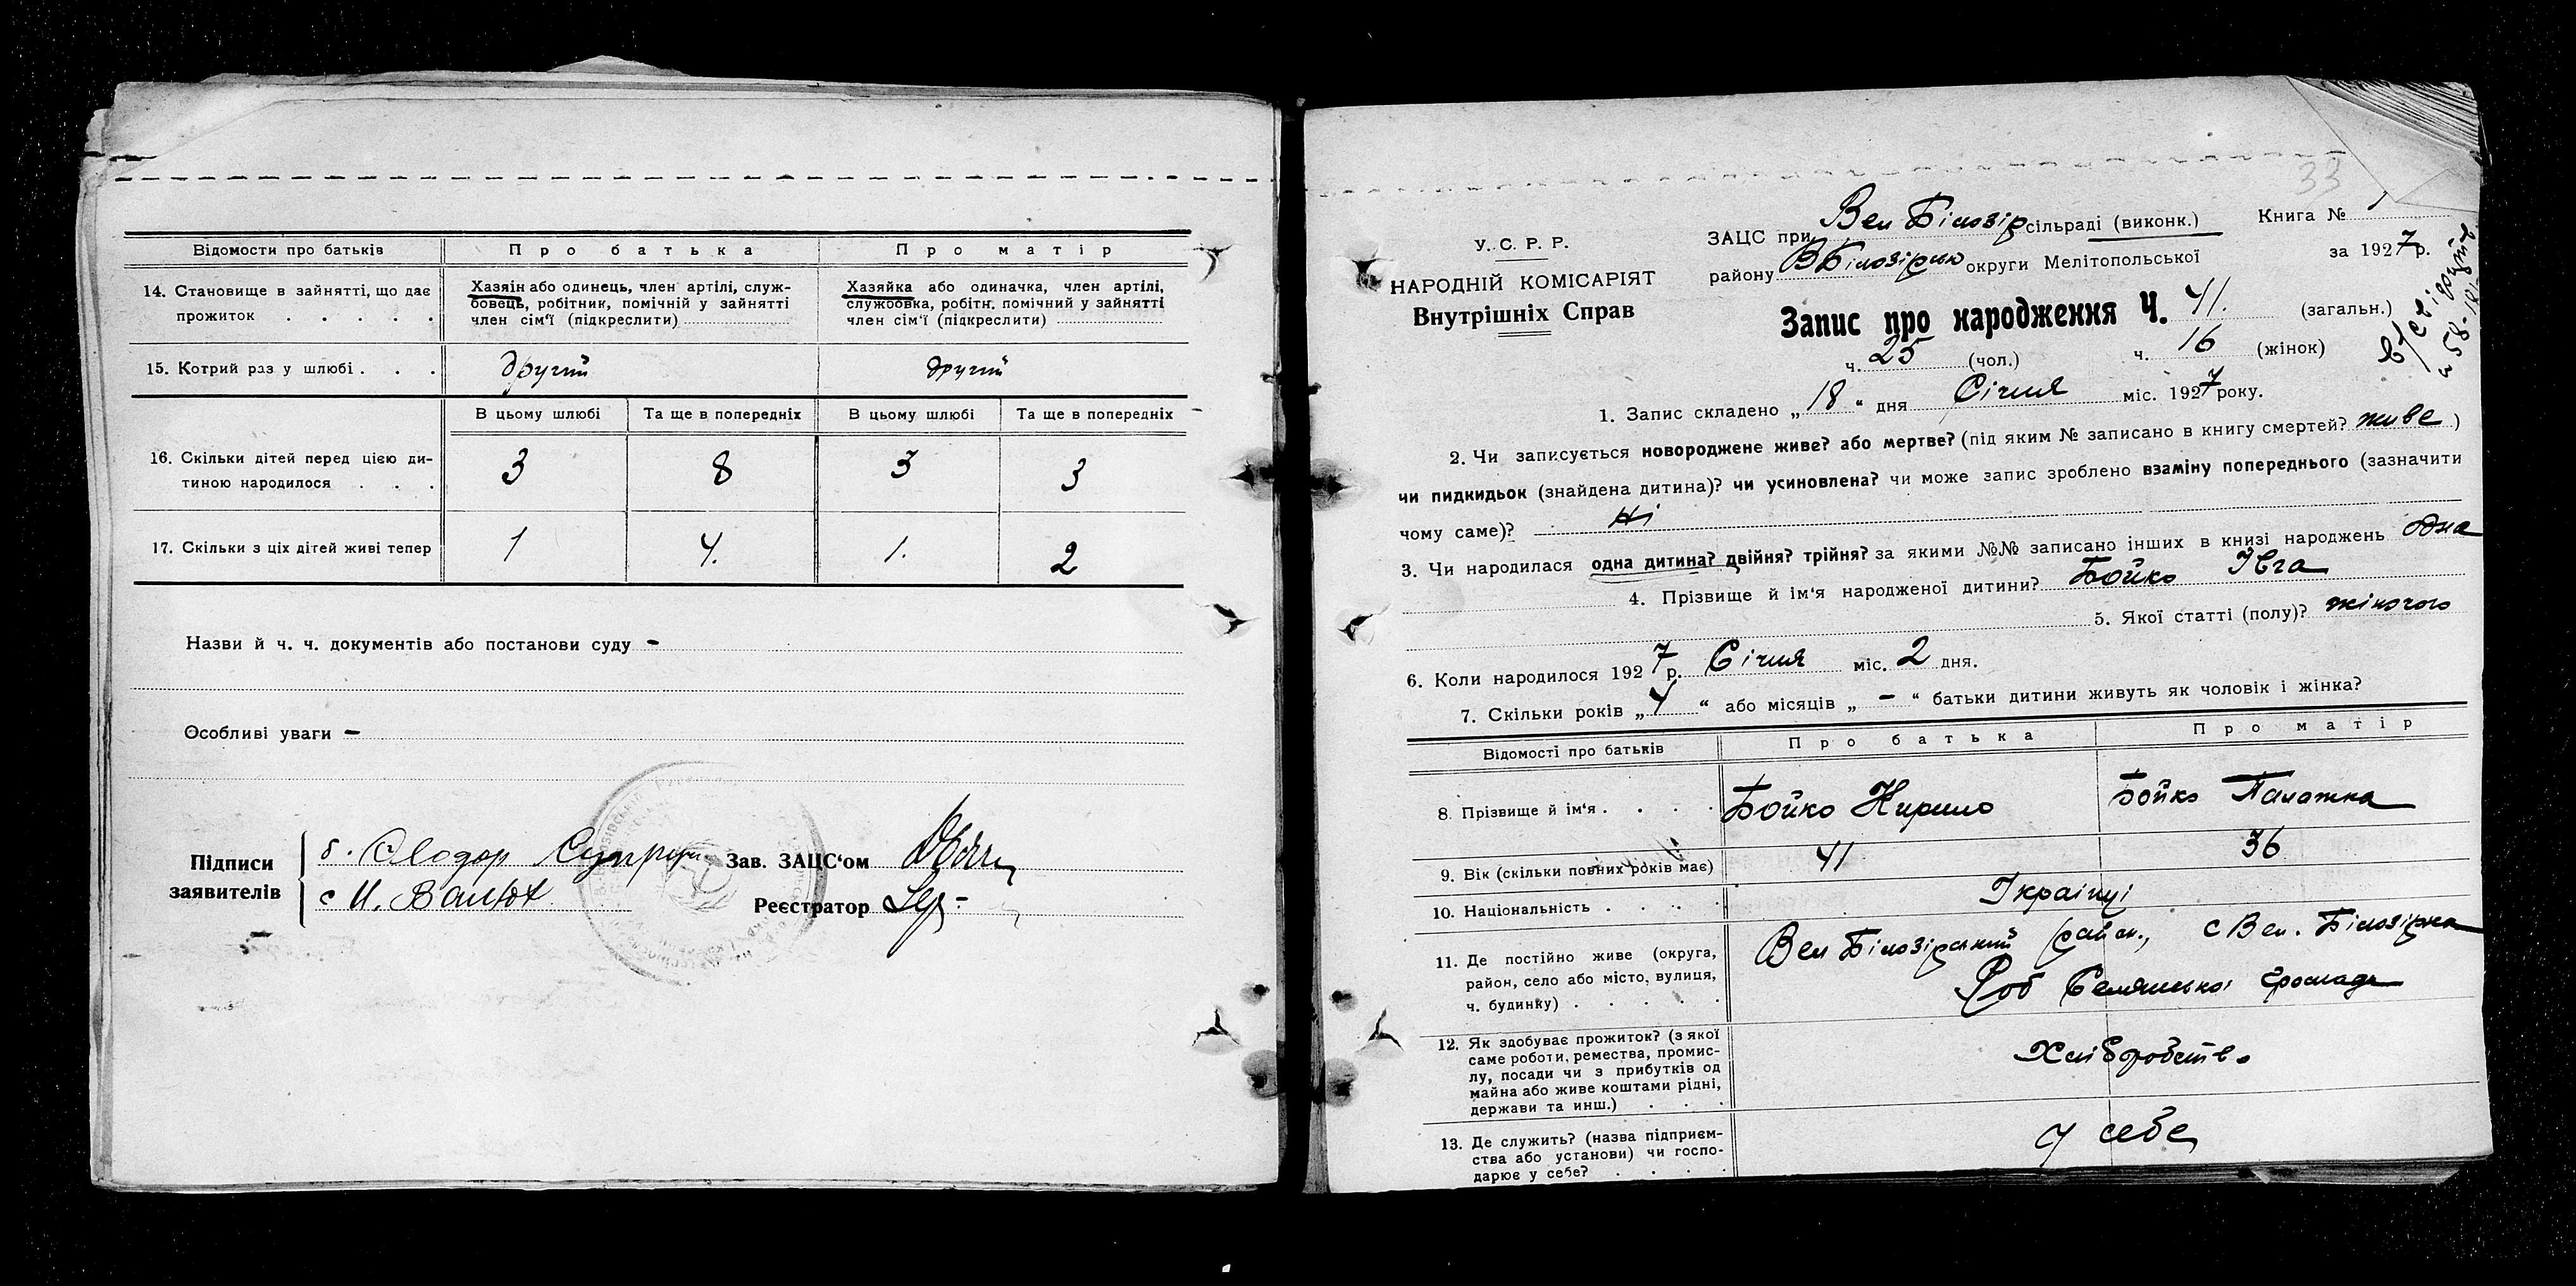 Відомости про батьків
Про батька
Про матір
14. Становище в зайнятті, що дає прожиток . . . . .
Хазяін або одинець, член артілі, служ-
бовець, робітник, помічній у зайнятті
член сім'ї (підкреслити)
Хазяйка або одиначка, член артілі,
службовка, робітн. помічний у зайнятті
член сім'ї (підкреслити)
15. Котрий раз у шлюбі . . .
другій
другій
В цьому шлюбі
Та ще в попередніх
В цьому шлюбі
Та ще в попередніх
16. Скільки дітей перед цією ди-
тиною народилося . . .
3
8
3
3
17. Скільки з ціх дітей живі тепер
1
4.
1.
2
Назви й ч. ч. документів або постанови суду –
Особливі уваги –
Підписи
заявителів
Зав. ЗАЦС'ом
Реєстратор
33
У. С. Р. Р.
НАРОДНІЙ КОМІСАРІЯТ
Внутрішніх Справ
ЗАЦС при Вел Білозір сільраді (виконк.)
Книга № 1
району ВБілозірськ округи Мелітопольської
за 1927 р.
Запис про народження Ч. 41. (загальн.)
ч. 25 (чол.) ч. 16 (жінок)
1. Запис складено „18“ дня Січня міс. 1927 року.
2. Чи записується новороджене живе? або мертве? (під яким № записано в книгу смертей? живе)
чи пидкидьок (знайдена дитина)? чи усиновлена? чи може запис зроблено взаміну попереднього (зазначити
чому саме)? Ні
3. Чи народилася одна дитина? двійня? трійня? за якими №№ записано інших в книзі народжень одна
4. Прізвище й ім'я народженої дитини? Бойко Івга
5. Якої статті (полу)? жіночого
6. Коли народилося 1927 р. Січня міс. 2 дня.
7. Скільки років „4“ або місяців „–“ батьки дитини живуть як чоловік і жінка?
Відомості про батьків
Про батька
Про матір
8. Прізвище й ім'я . . . .
Бойко Кирило
Бойко Палажка
9. Вік (скільки повних років має)
41
36
10. Національність . . . .
Українці
11. Де постійно живе (округа,
район, село або місто, вулиця,
ч. будинку) . . . . .
Вел Білозірський район, с Вел. Білозірка
Роб Селянської Громади
12. Як здобуває прожиток? (з якої
саме роботи, ремества, промис-
лу, посади чи з прибутків од
майна або живе коштами рідні,
держави та инш.) . . .
Хліборобство
13. Де служить? (назва підприєм-
ства або установи) чи госпо-
дарює у себе? . . . .
У себе